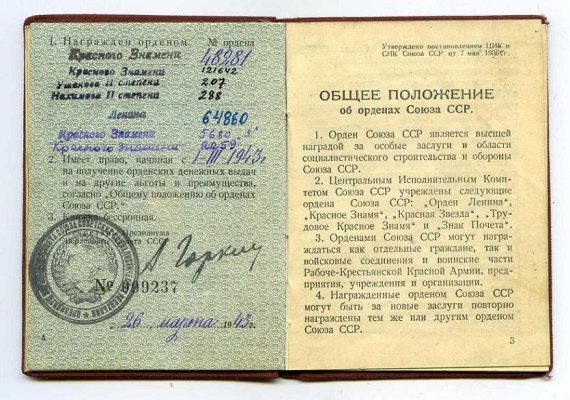 1. Награжден орденом № ордена
Красного Знамени 48281
Красного Знамени 121642
Ушакова II степени 207
Нахимова II степени 288
Ленина 64860
Красного Знамени 5680
Красного Знамени 2259
2. Имеет право, начиная с 1-III-1943 г
на получение орденских денежных выдач
и на другие льготы и преимущества,
согласно „Общему положению об орденах
Союза ССР.“
3. Книжка бессрочная.
Президиума
Совета ССР
А Горкин
№ 099237
26 марта 1943 г.
А
Утверждено постановлением ЦИК и
СНК Союза ССР от 7 мая 1936 г.
ОБЩЕЕ ПОЛОЖЕНИЕ
об орденах Союза ССР.
1. Орден Союза ССР является высшей
наградой за особые заслуги в области
социалистического строительства и обороны
Союза ССР.
2. Центральным Исполнительным Коми-
тетом Союза ССР учреждены следующие
ордена Союза ССР: „Орден Ленина“,
„Красное Знамя“, „Красная Звезда“, „Тру-
довое Красное Знамя“ и „Знак Почета“.
3. Орденами Союза ССР могут награ-
ждаться как отдельные граждане, так и
войсковые соединения и воинские части
Рабоче-Крестьянской Красной Армии, пред-
приятия, учреждения и организации.
4. Награжденные орденом Союза ССР
могут быть за новые заслуги повторно
награждены тем же или другим орденом
Союза ССР.
3